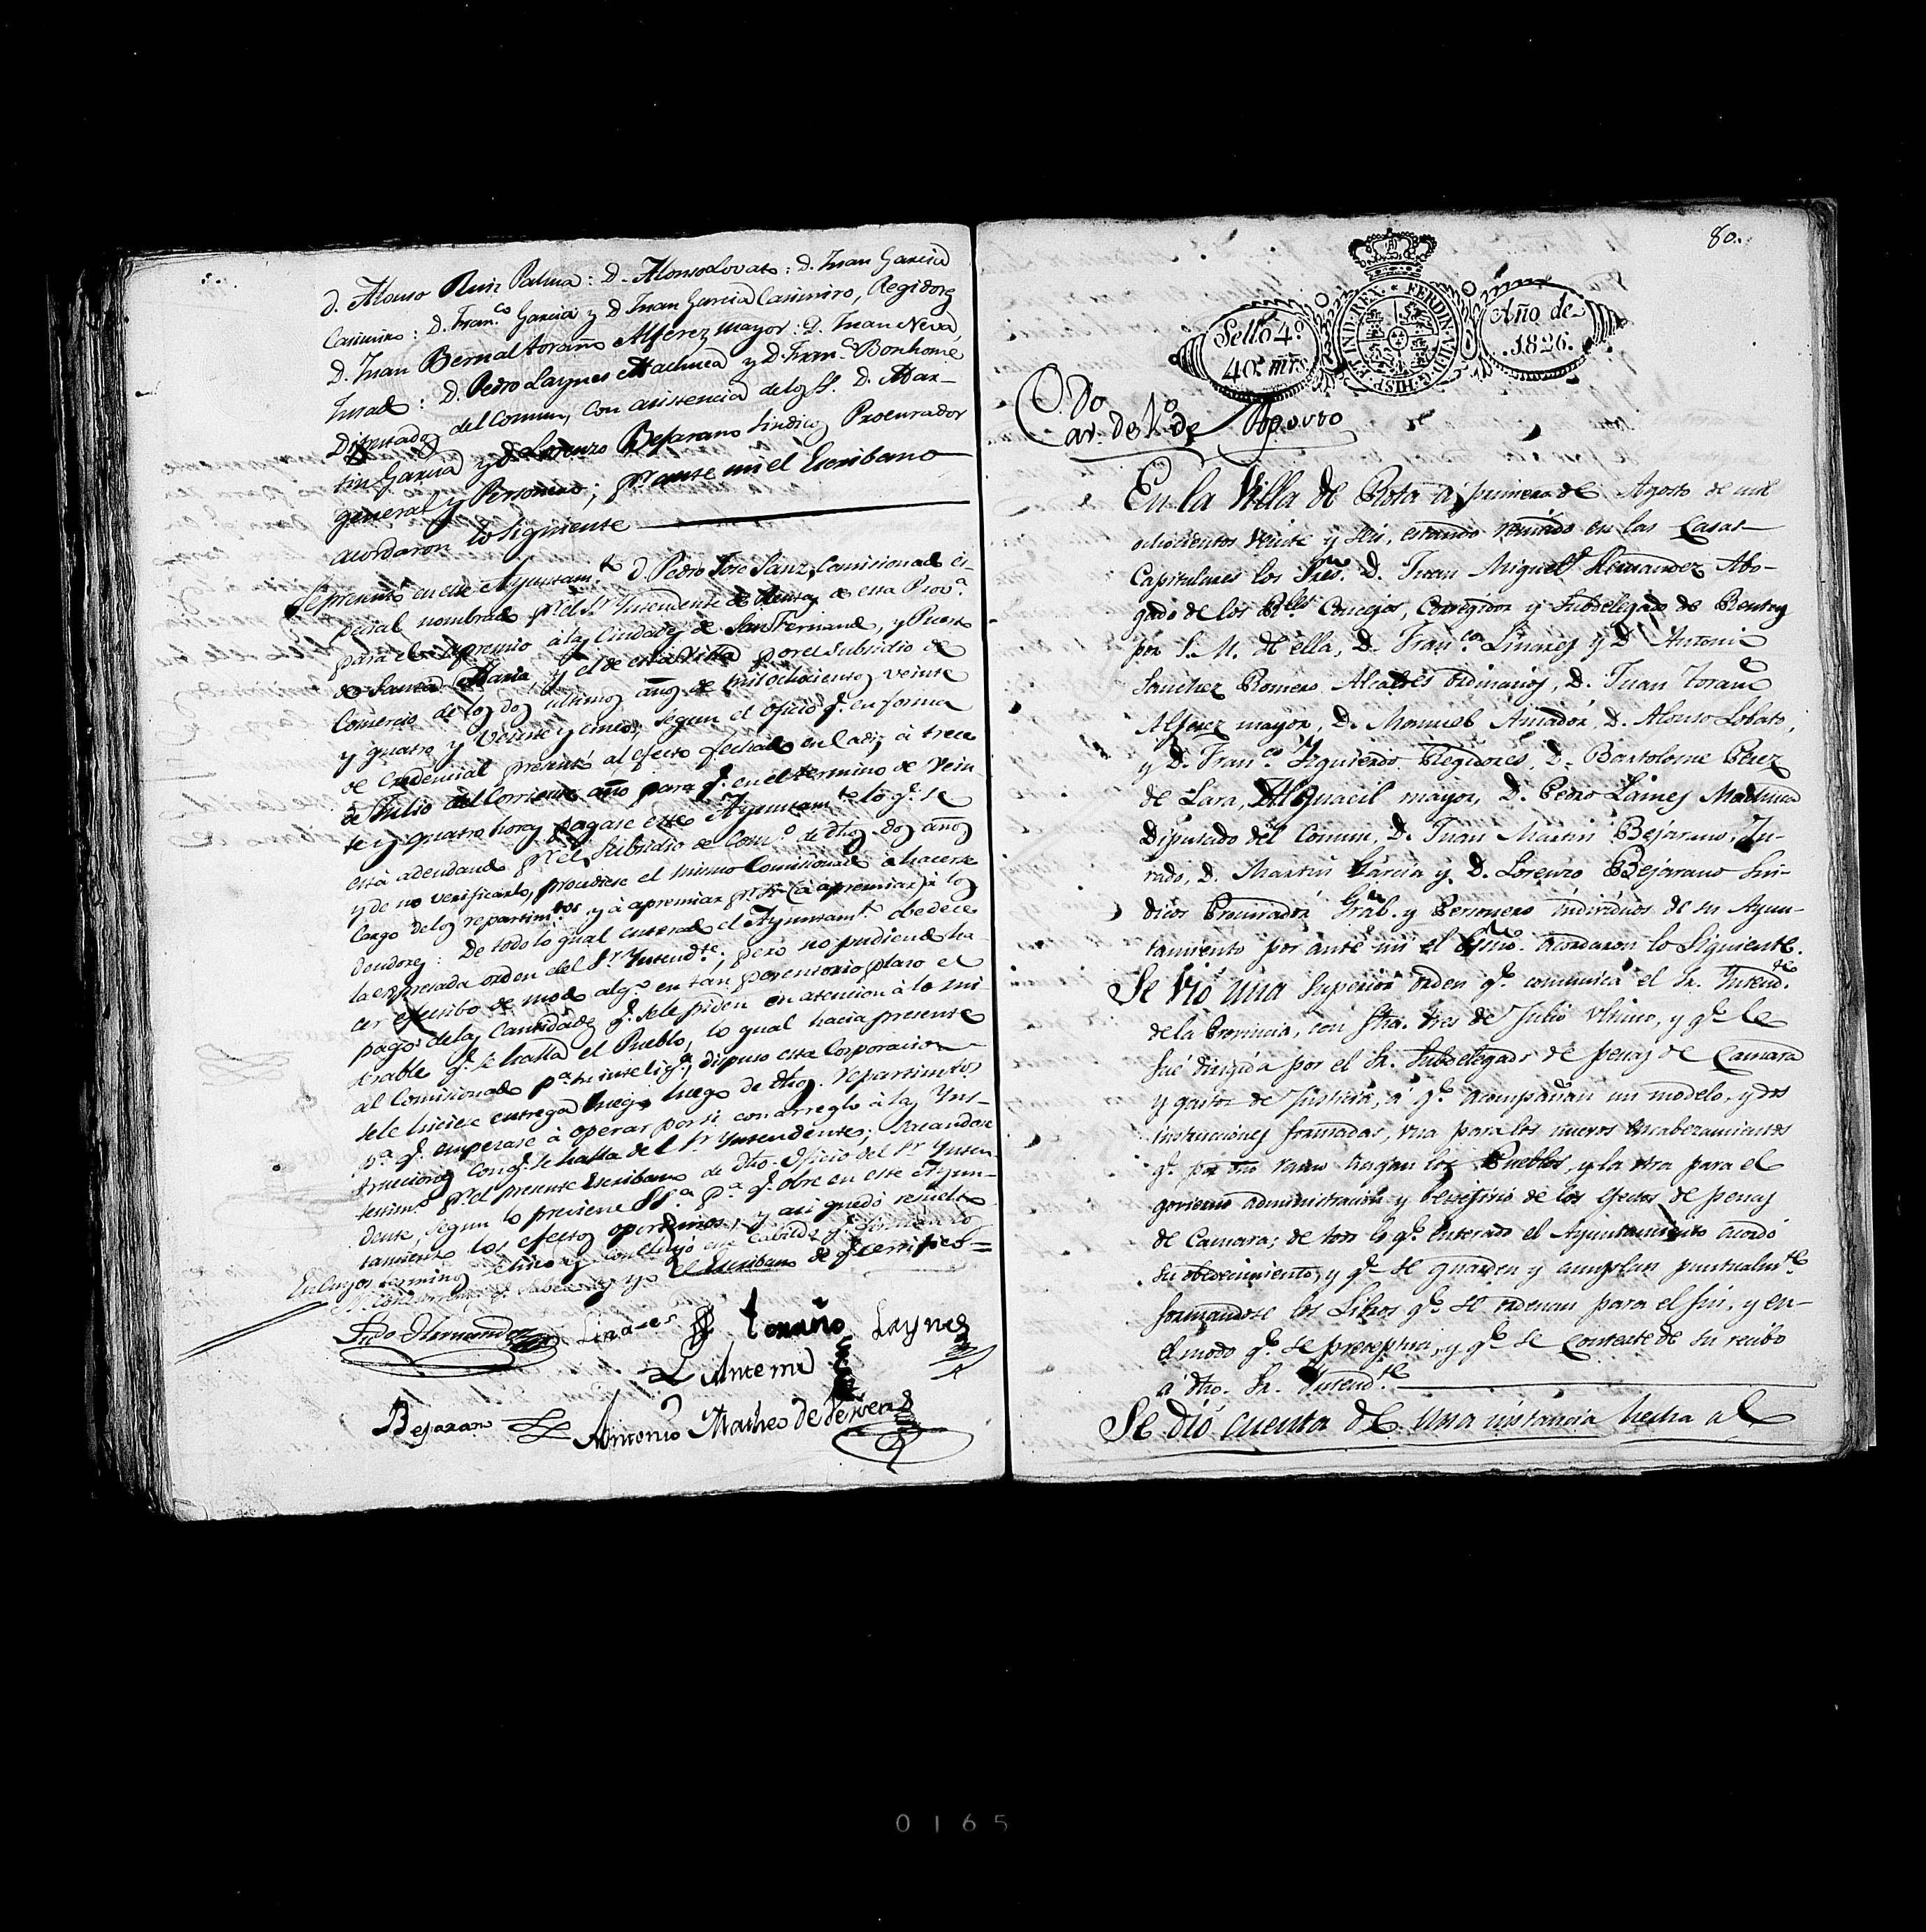 D. Alonso Ruiz Palma: D. Alonso Lovato: D. Juan Garcia
Casimiro: D. Fran.co Garcia y D Juan Garcia Casimiro, Regidores
D. Juan Bernal toraño Alferez mayor: D. Juan Neva
Jurado: D. Pedro Laynes Machuca y D. Fran.co Bonhome
Diputados del Comun, con asistencia de los SS. D. Mar-
tin Garcia y D. Lorenzo Bejarano Sindicos Procurador
general y Personero; pr. ante mi el Escribano
acordaron lo siguiente
Se presentó en este Ayuntam.to D. Pedro Jose Sanz, Comisionado es-
pecial nombrado pr. el Sr. Yntendente de Rentas de esta Prov.a
para el apremio á las Ciudades de San Fernando, y Puerto
de Santa Maria, y el de esta Villa por el subsidio de
Comercio de los dos ultimos años de mil ochocientos veinte
y quatro y veinte y cinco, segun el oficio q. en forma
de credencial presentó al efecto fechado en Cadiz á trece
de Julio del corriente año para q. en el termino de vein
te y quatro horas pagase este Ayuntam.to lo q. se
está adeudando pr. el subsidio de Com.o de dhos dos años
y de no verificarlo, procediese el mismo Comisionado á hacerse
cargo de los repartim.tos y á apremiar pr. si (á apremiar) á los
deudores: De todo lo qual enterado el Ayuntam.to obedece
la expresada orden del Sr. Yntend.te; pero no pudiendo ha-
cer efectibo de modo alg.o en tan perentorio plazo el
pago de las Cantidades q. se le piden en atencion á lo mi-
serable q. se halla el Pueblo, lo qual hacia presente
al Comisionado p.a su intelig.a, dispuso esta Corporacion
se le hiciese entrega luego luego de dhos. repartimtos
p.a q. empezase á operar por si con arreglo á las Yns-
trucciones con q. se halla del Sr. Yntendente; sacandose
testim.o pr. el presente Escribano de dho. Oficio del Sr. Ynten-
dente, segun lo previene SS.a p.a q. obre en este Ayun-
tamiento los efectos oportunos, y asi quedó resuelto
En cuyos terminos se hizo y concluyó este Cabildo q. firmaron los
SS. concurrentes q. saben y yo el Escribano de q. certifico=
Lido Hernandez Linares toraño Laynes
Ante mi
Bejarano Antonio Matheo de
80.
Sello 4.o
40. mrs.
HISP. ET IND. REX. FERDIN. VII. D. G.
Año de
1826.
C.do
ar. de 1.o de Agosto
En la Villa de Rota á primero de Agosto de mil
ochocientos veinte y seis, estando reunidos en las Casas
Capitulares los Sres. D. Juan Miguel Hernandez Abo-
gado de los Rles. Concejos, Corregidor y Subdelegado de Rentas
por S. M. de ella, D. Fran.co Linares y D. Antonio
Sanchez Romero Alcaldes ordinarios, D. Juan toraño
Alferez mayor, D. Manuel Amador, D. Alonso Lobato,
y D. Fran.co Yzquierdo Regidores, D. Bartolome Perez
de Lara, Alguacil mayor, D. Pedro Laines Machuca
Diputado del Comun, D. Juan Martin Bejarano, Ju-
rado, D. Martin Garcia y D. Lorenzo Bejarano Sin-
dicos Procurador Gral. y Personero individuos de su Ayun-
tamiento por ante mi el Esno. acordaron lo siguiente.
Se vio una superior orden q.e comunica el Sr. Yntend.te
de la Provincia, con fha. tres de Julio ultimo, y q.e le
fué dirigida por el Sr. Subdelegado de penas de Camara
y gastos de Justicia, á q.e acompañan un modelo, y dos
instrucciones formadas, una para los nuevos encabezamientos
q.e por dho ramo hagan los Pueblos, y la otra para el
govierno administracion y beneficio de los efectos de penas
de Camara; de todo lo q.e enterado el Ayuntamiento acordó
su obedecimiento, y q.e se guarden y cumplan puntualm.te
formandose los Libros q.e se ordenan para el fin, y en
el modo q.e se preceptua, y q.e se conteste de su recibo
á dho. Sr. Yntend.te
Se dió cuenta de una instancia hecha al
0165